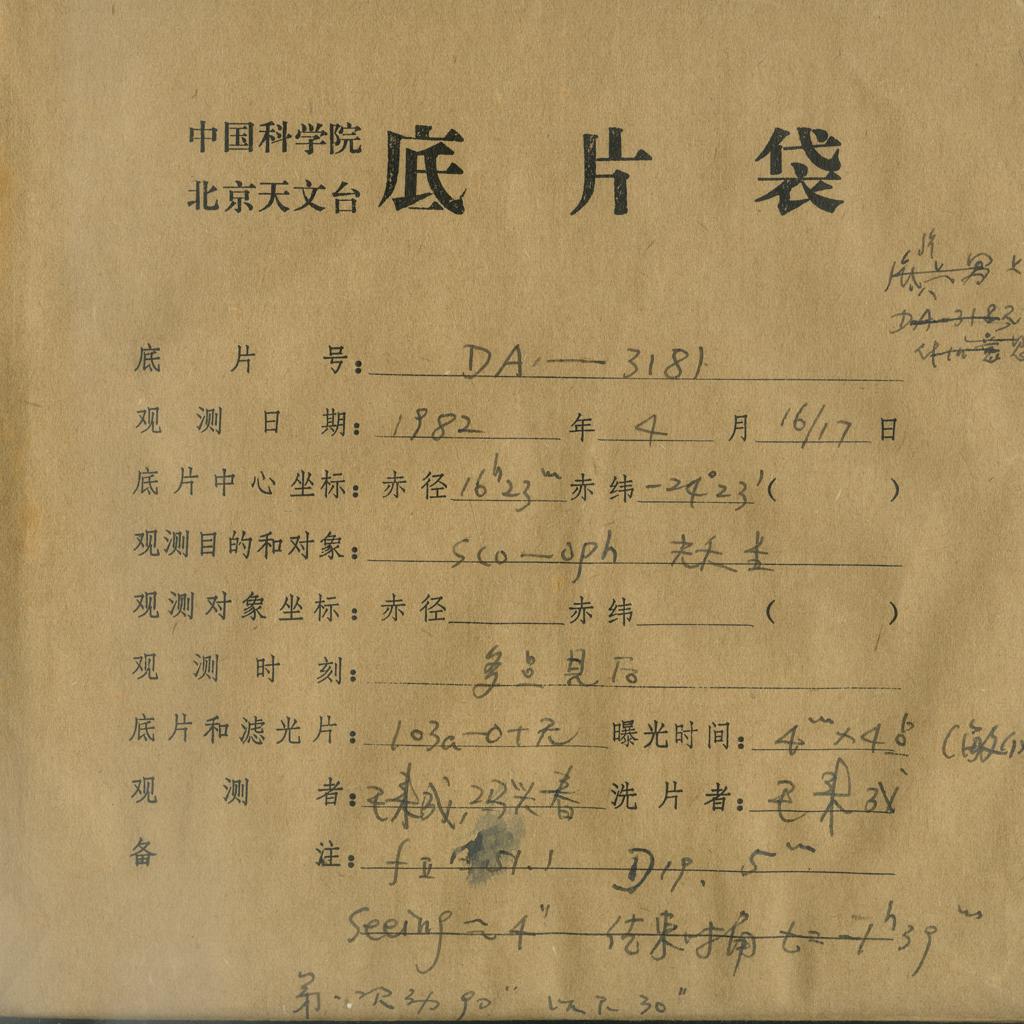 中国科学院
北京天文台
底片袋
底片号： DA — 3181
观测日期： 1982 年 4 月 16/17 日
底片中心坐标：赤径 16h23m 赤纬 -24°23′ ( )
观测目的和对象： Sco — oph
观测对象坐标：赤径 赤纬 ( )
观测时刻： 多点见后
底片和滤光片： 103a-O+无 曝光时间： 4m×4
观测者： 洗片者：
备注： D19. 5m
Seeing ~ 4″ 结束时角 t= -1h39m
第一次动 90″ 以下 30″
DA-3183